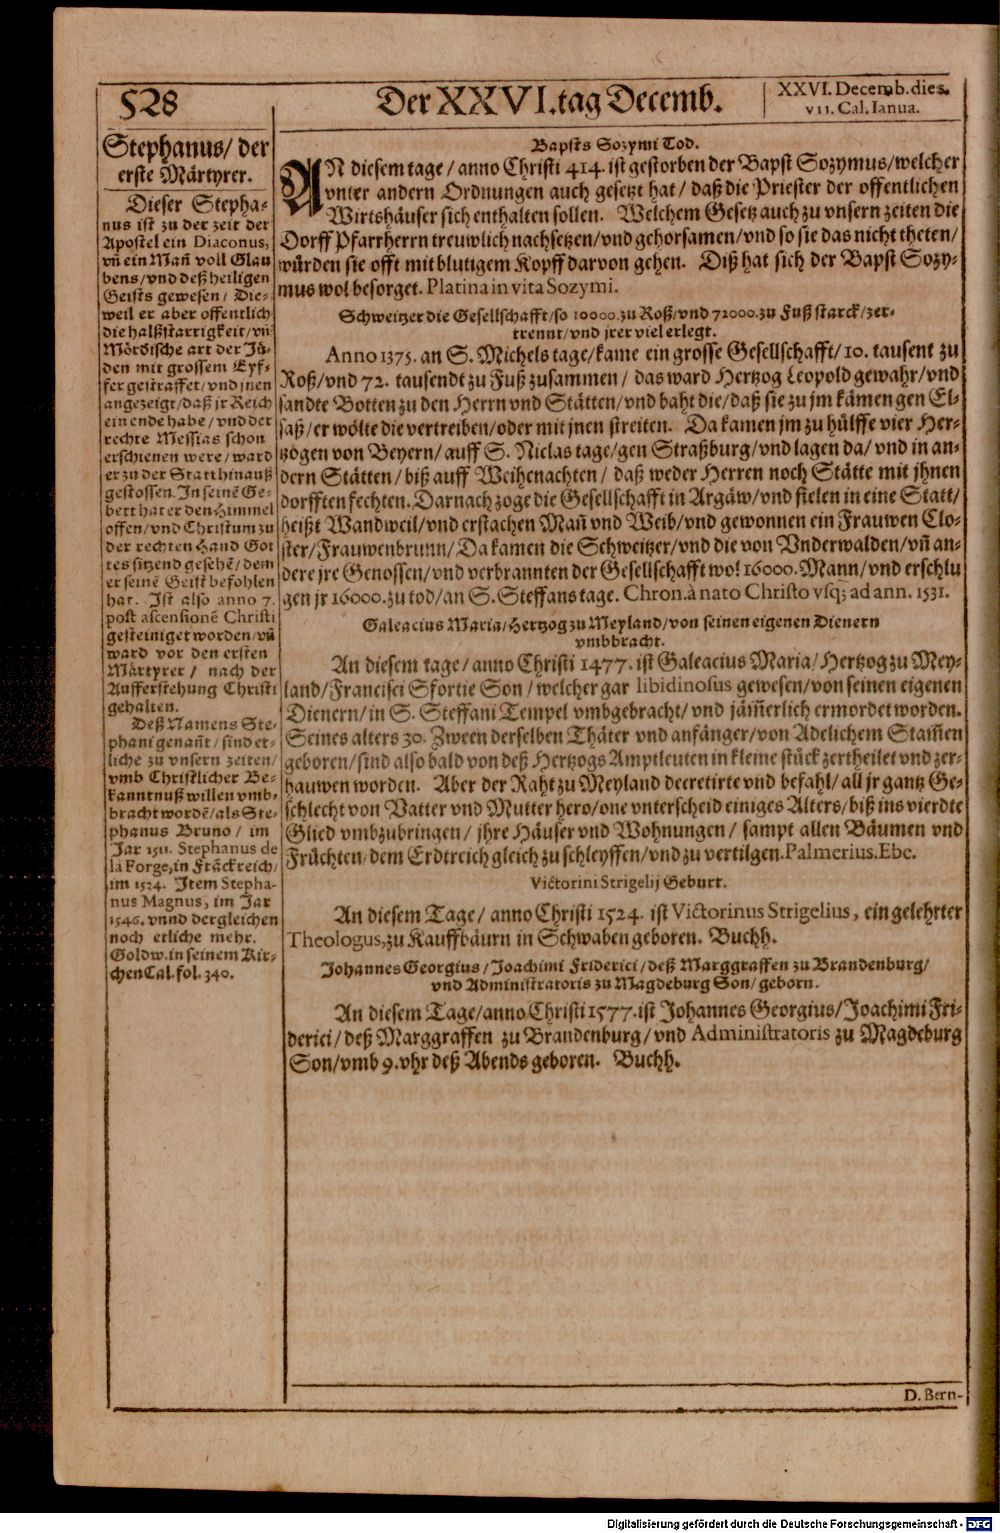 528
Der XXVI. tag Decemb.
XXVI. Decemb. dies.
VII. Cal. Ianua.
Stephanus/ der
erste Märtyrer.
Dieser Stepha-
nus ist zu der zeit der
Apostel ein Diaconus,
vn̄ ein Mañ voll Glau
bens/ vnd deß heiligen
Geists gewesen/ Die-
weil er aber offentlich
die halßstarrigkeit/ vn̄
Mördische art der Jü-
den mit grossem Eyf-
fer gestraffet/ vnd jnen
angezeigt/ daß jr Reich
ein ende habe/ vnd der
rechte Messias schon
erschienen were/ ward
er zu der Statt hinauß
gestossen. In seinē Ge-
bett hat er den Himmel
offen/ vnd Christum zu
der rechten Hand Got
tes sitzend gesehē/ dem
er seinē Geist befohlen
hat. Ist also anno 7.
post ascensionē Christi
gesteiniget worden/ vn̄
ward vor den ersten
Märtyrer/ nach der
Aufferstehung Christi
gehalten.
Deß Namens Ste-
phani genañt/ sind et-
liche zu vnsern zeiten/
vmb Christlicher Be-
kanntnuß willen vmb-
bracht wordē/ als Ste-
phanus Bruno/ im
Jar 1511. Stephanus de
la Forge, in Frāckreich/
im 1524. Item Stepha-
nus Magnus, im Jar
1546. vnnd dergleichen
noch etliche mehr.
Goldw. in seinem Kir-
chen Cal. fol. 340.
Bapsts Sozymi Tod.
AN diesem tage/ anno Christi 414. ist gestorben der Bapst Sozymus/ welcher
vnter andern Ordnungen auch gesetzt hat/ daß die Priester der offentlichen
Wirtshäuser sich enthalten sollen. Welchem Gesetz auch zu vnsern zeiten die
Dorff Pfarrherrn treuwlich nachsetzen/ vnd gehorsamen/ vnd so sie das nicht theten/
würden sie offt mit blutigem Kopff darvon gehen. Diß hat sich der Bapst Sozy-
mus wol besorget. Platina in vita Sozymi.
Schweitzer die Gesellschafft/ so 10000. zu Roß/ vnd 72000. zu Fuß starck/ zer-
trennt/ vnd jrer viel erlegt.
Anno 1375. an S. Michels tage/ kame ein grosse Gesellschafft/ 10. tausent zu
Roß/ vnd 72. tausendt zu Fuß zusammen/ das ward Hertzog Leopold gewahr/ vnd
sandte Botten zu den Herrn vnd Stätten/ vnd baht die/ daß sie zu jm kämen gen El-
saß/ er wölte die vertreiben/ oder mit jnen streiten. Da kamen jm zu hülffe vier Her-
tzogen von Beyern/ auff S. Niclas tage/ gen Straßburg/ vnd lagen da/ vnd in an-
dern Stätten/ biß auff Weihenachten/ daß weder Herren noch Stätte mit jhnen
dorfften fechten. Darnach zoge die Gesellschafft in Argäw/ vnd fielen in eine Statt/
heißt Wandweil/ vnd erstachen Mañ vnd Weib/ vnd gewonnen ein Frauwen Clo-
ster/ Frauwenbrunn/ Da kamen die Schweitzer/ vnd die von Vnderwalden/ vn̄ an-
dere jre Genossen/ vnd verbrannten der Gesellschafft wol 16000. Mann/ vnd erschlu
gen jr 16000. zu tod/ an S. Steffans tage. Chron. à nato Christo vsq; ad ann. 1531.
Galeacius Maria/ Hertzog zu Meyland/ von seinen eigenen Dienern
vmbbracht.
An diesem tage/ anno Christi 1477. ist Galeacius Maria/ Hertzog zu Mey-
land/ Francisci Sfortie Son/ welcher gar libidinosus gewesen/ von seinen eigenen
Dienern/ in S. Steffani Tempel vmbgebracht/ vnd jäm̄erlich ermordet worden.
Seines alters 30. Zween derselben Thäter vnd anfänger/ von Adelichem Stam̄en
geboren/ sind also bald von deß Hertzogs Amptleuten in kleine stück zertheilet vnd zer-
hauwen worden. Aber der Raht zu Meyland decretirte vnd befahl/ all jr gantz Ge-
schlecht von Vatter vnd Mutter hero/ one vnterscheid einiges Alters/ biß ins vierdte
Glied vmbzubringen/ jhre Häuser vnd Wohnungen/ sampt allen Bäumen vnd
Früchten/ dem Erdtreich gleich zu schleyffen/ vnd zu vertilgen. Palmerius. Ebe.
Victorini Strigelij Geburt.
An diesem Tage/ anno Christi 1524. ist Victorinus Strigelius, ein gelehrter
Theologus, zu Kauffbäurn in Schwaben geboren. Buchh.
Johannes Georgius/ Joachimi Friderici/ deß Marggraffen zu Brandenburg/
vnd Administratoris zu Magdeburg Son/ geborn.
An diesem Tage/ anno Christi 1577. ist Johannes Georgius/ Joachimi Fri-
derici/ deß Marggraffen zu Brandenburg/ vnd Administratoris zu Magdeburg
Son/ vmb 9. vhr deß Abends geboren. Buchh.
D. Bern-
Digitalisierung gefördert durch die Deutsche Forschungsgemeinschaft - DFG